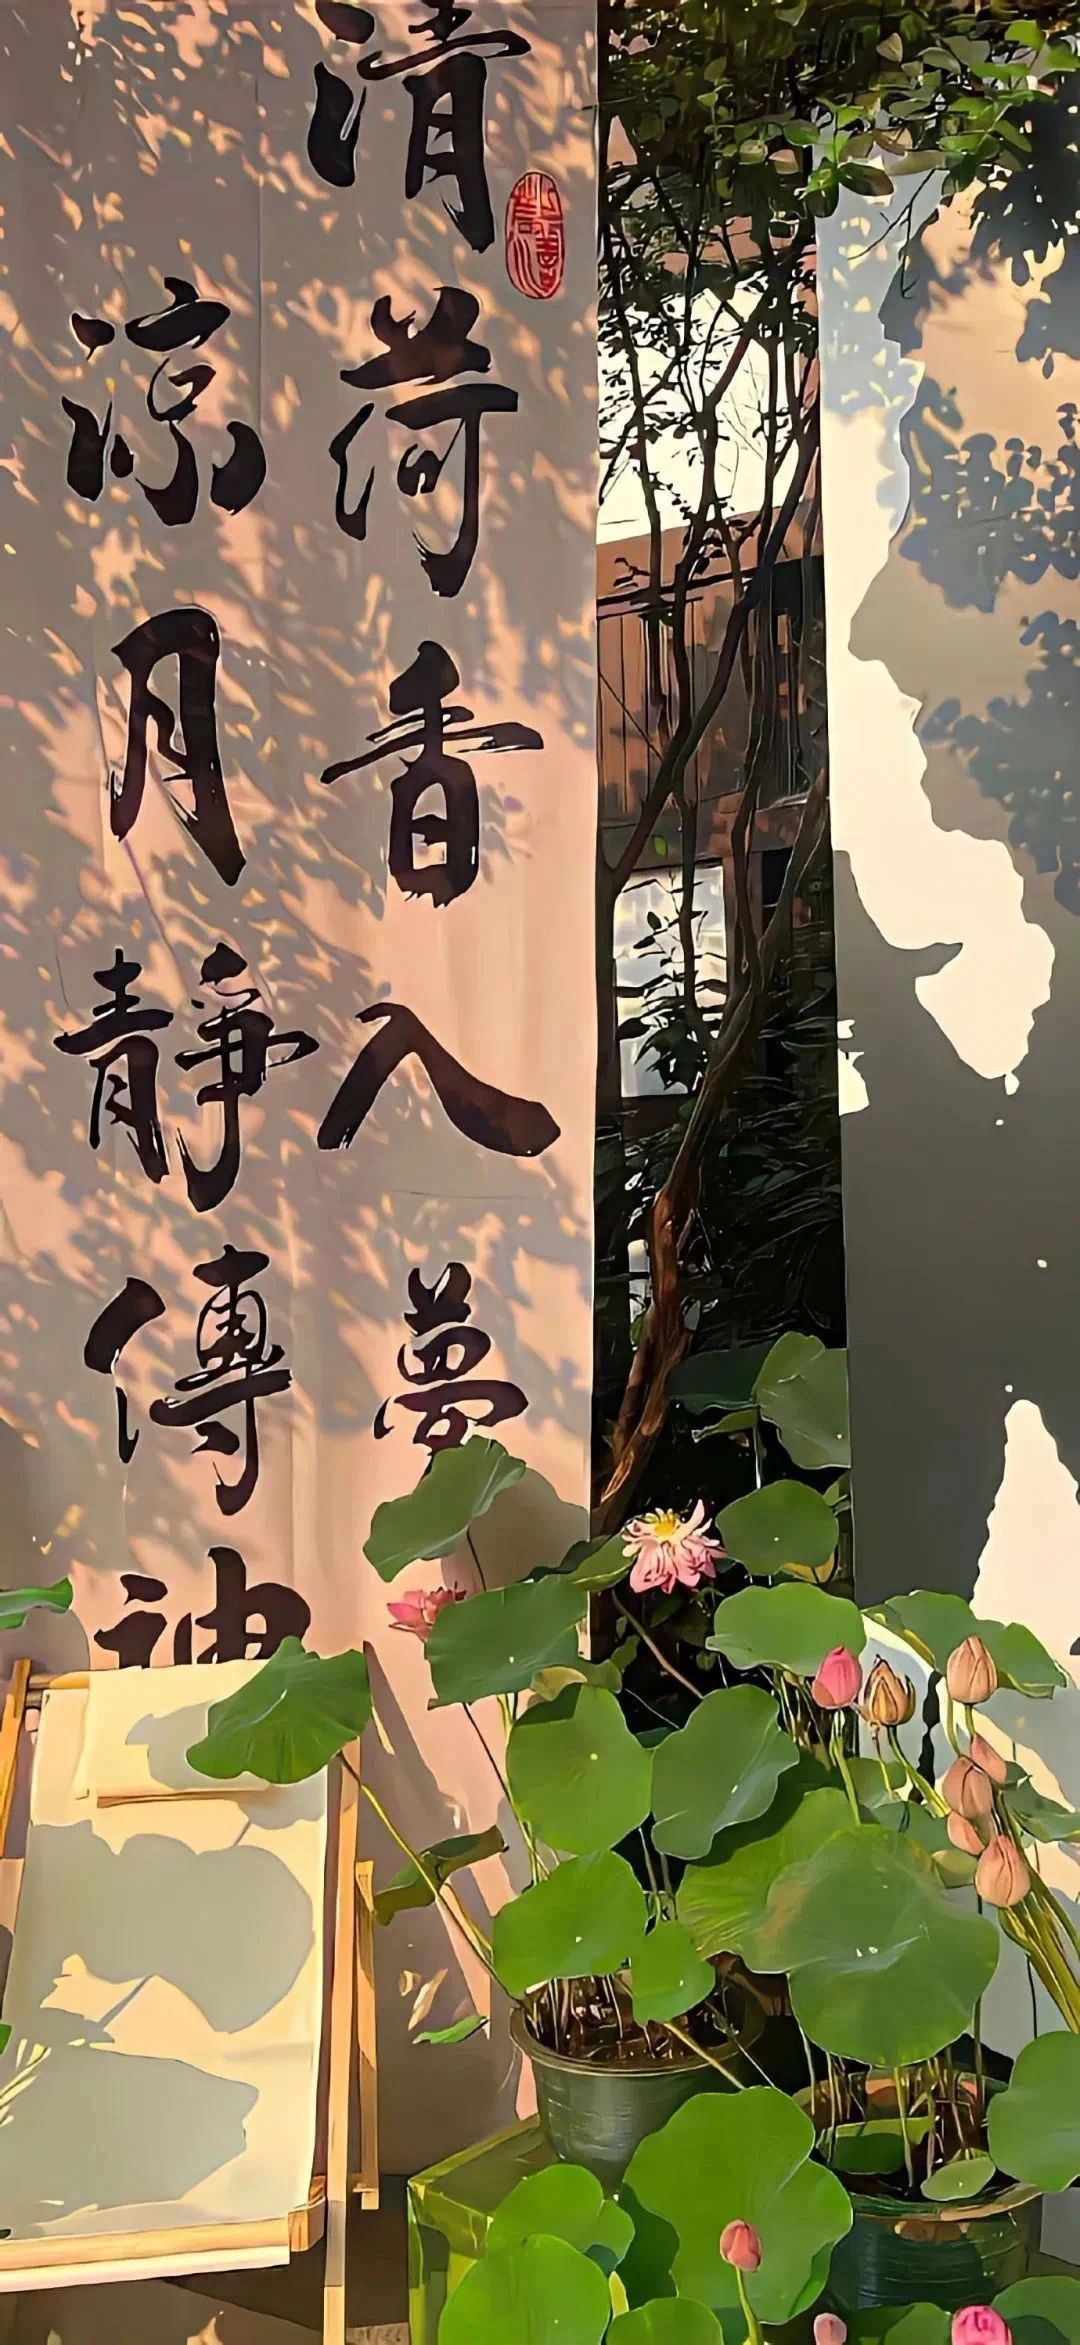 清荷香入夢
涼月靜傳神